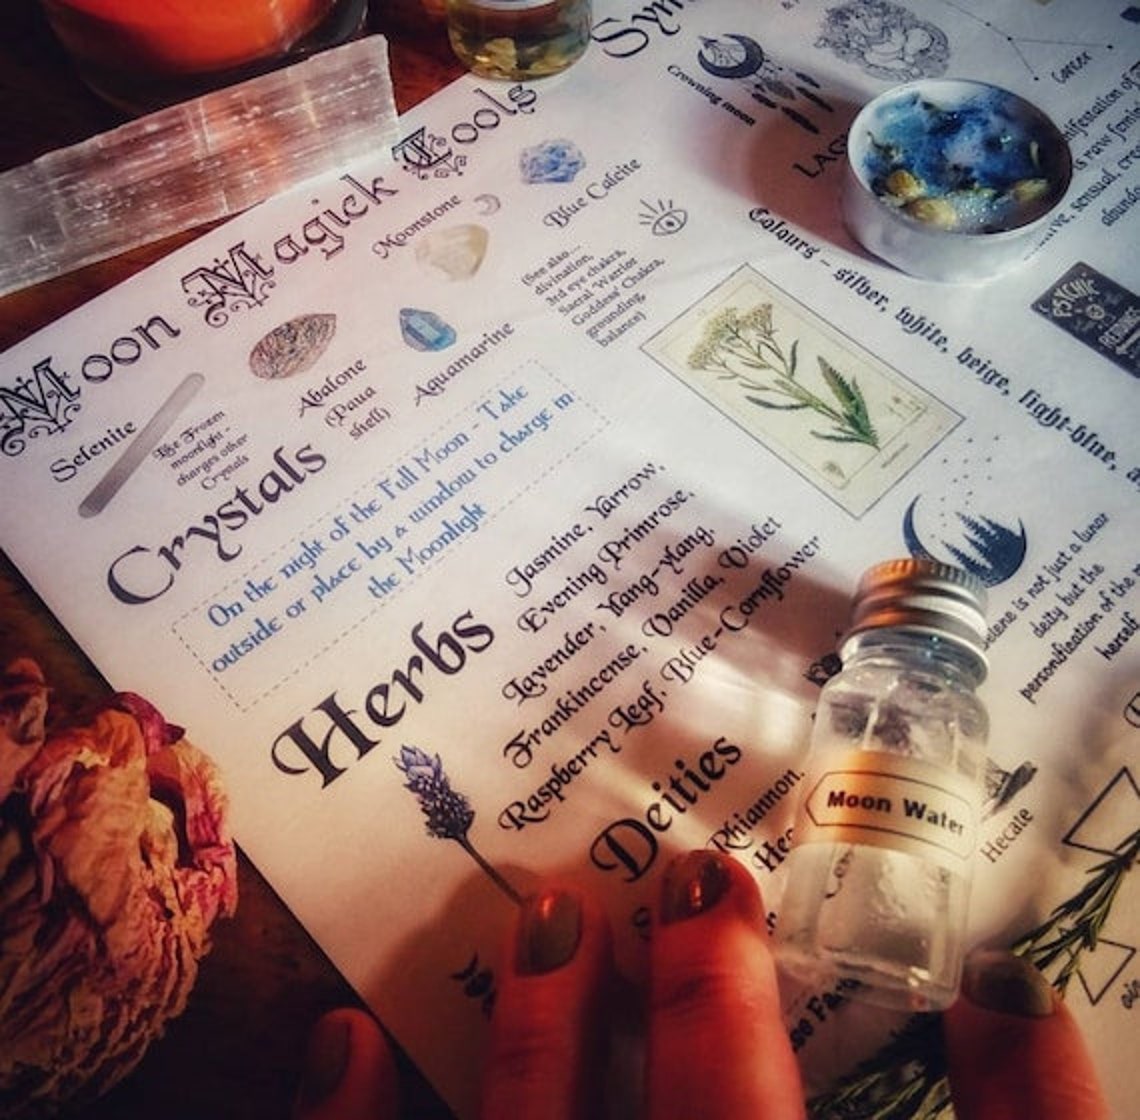 Moon Magick Tools
Selenite
like Frozen
moonlight -
charges other
Crystals
Abalone
(Paua
shell)
Moonstone
Aquamarine
Blue Calcite
(See also...
divination,
3rd eye chakra,
Sacral 'Warrior
Goddess' Chakra,
grounding,
balance)
Crystals
On the night of the Full Moon - Take
outside or place by a window to charge in
the Moonlight
Herbs
Jasmine, Yarrow,
Evening Primrose,
Lavender, Ylang-Ylang,
Frankincense, Vanilla, Violet
Raspberry Leaf, Blue-Cornflower
Deities
Rhiannon,
Crowning moon
Cancer
Colours - silver, white, beige, light-blue,
PSYCHIC
is not just a lunar
deity but the
personification of the
herself
Hecate
Moon Water